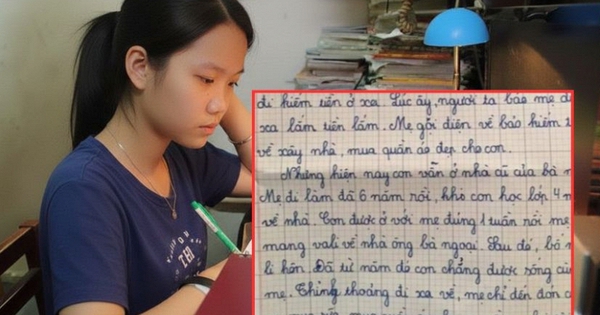 đi kiếm tiền ở xa. Lúc ấy, người ta bảo mẹ đi
xa lắm tiền lắm. Mẹ gọi điện về bảo kiếm t
về xây nhà, mua quần áo đẹp cho con.
Nhưng hiện nay con vẫn ở nhà cũ của bà n
Mẹ đi làm đã 6 năm rồi, khi con học lớp 4 m
về nhà. Con được ở với mẹ đúng 1 tuần rồi mẹ
mang vali về nhà ông bà ngoại. Sau đó, bố m
li hôn. Đã từ năm đó con chẳng được sống cù
mẹ. Thỉnh thoảng đi xa về, mẹ chỉ đến đón c